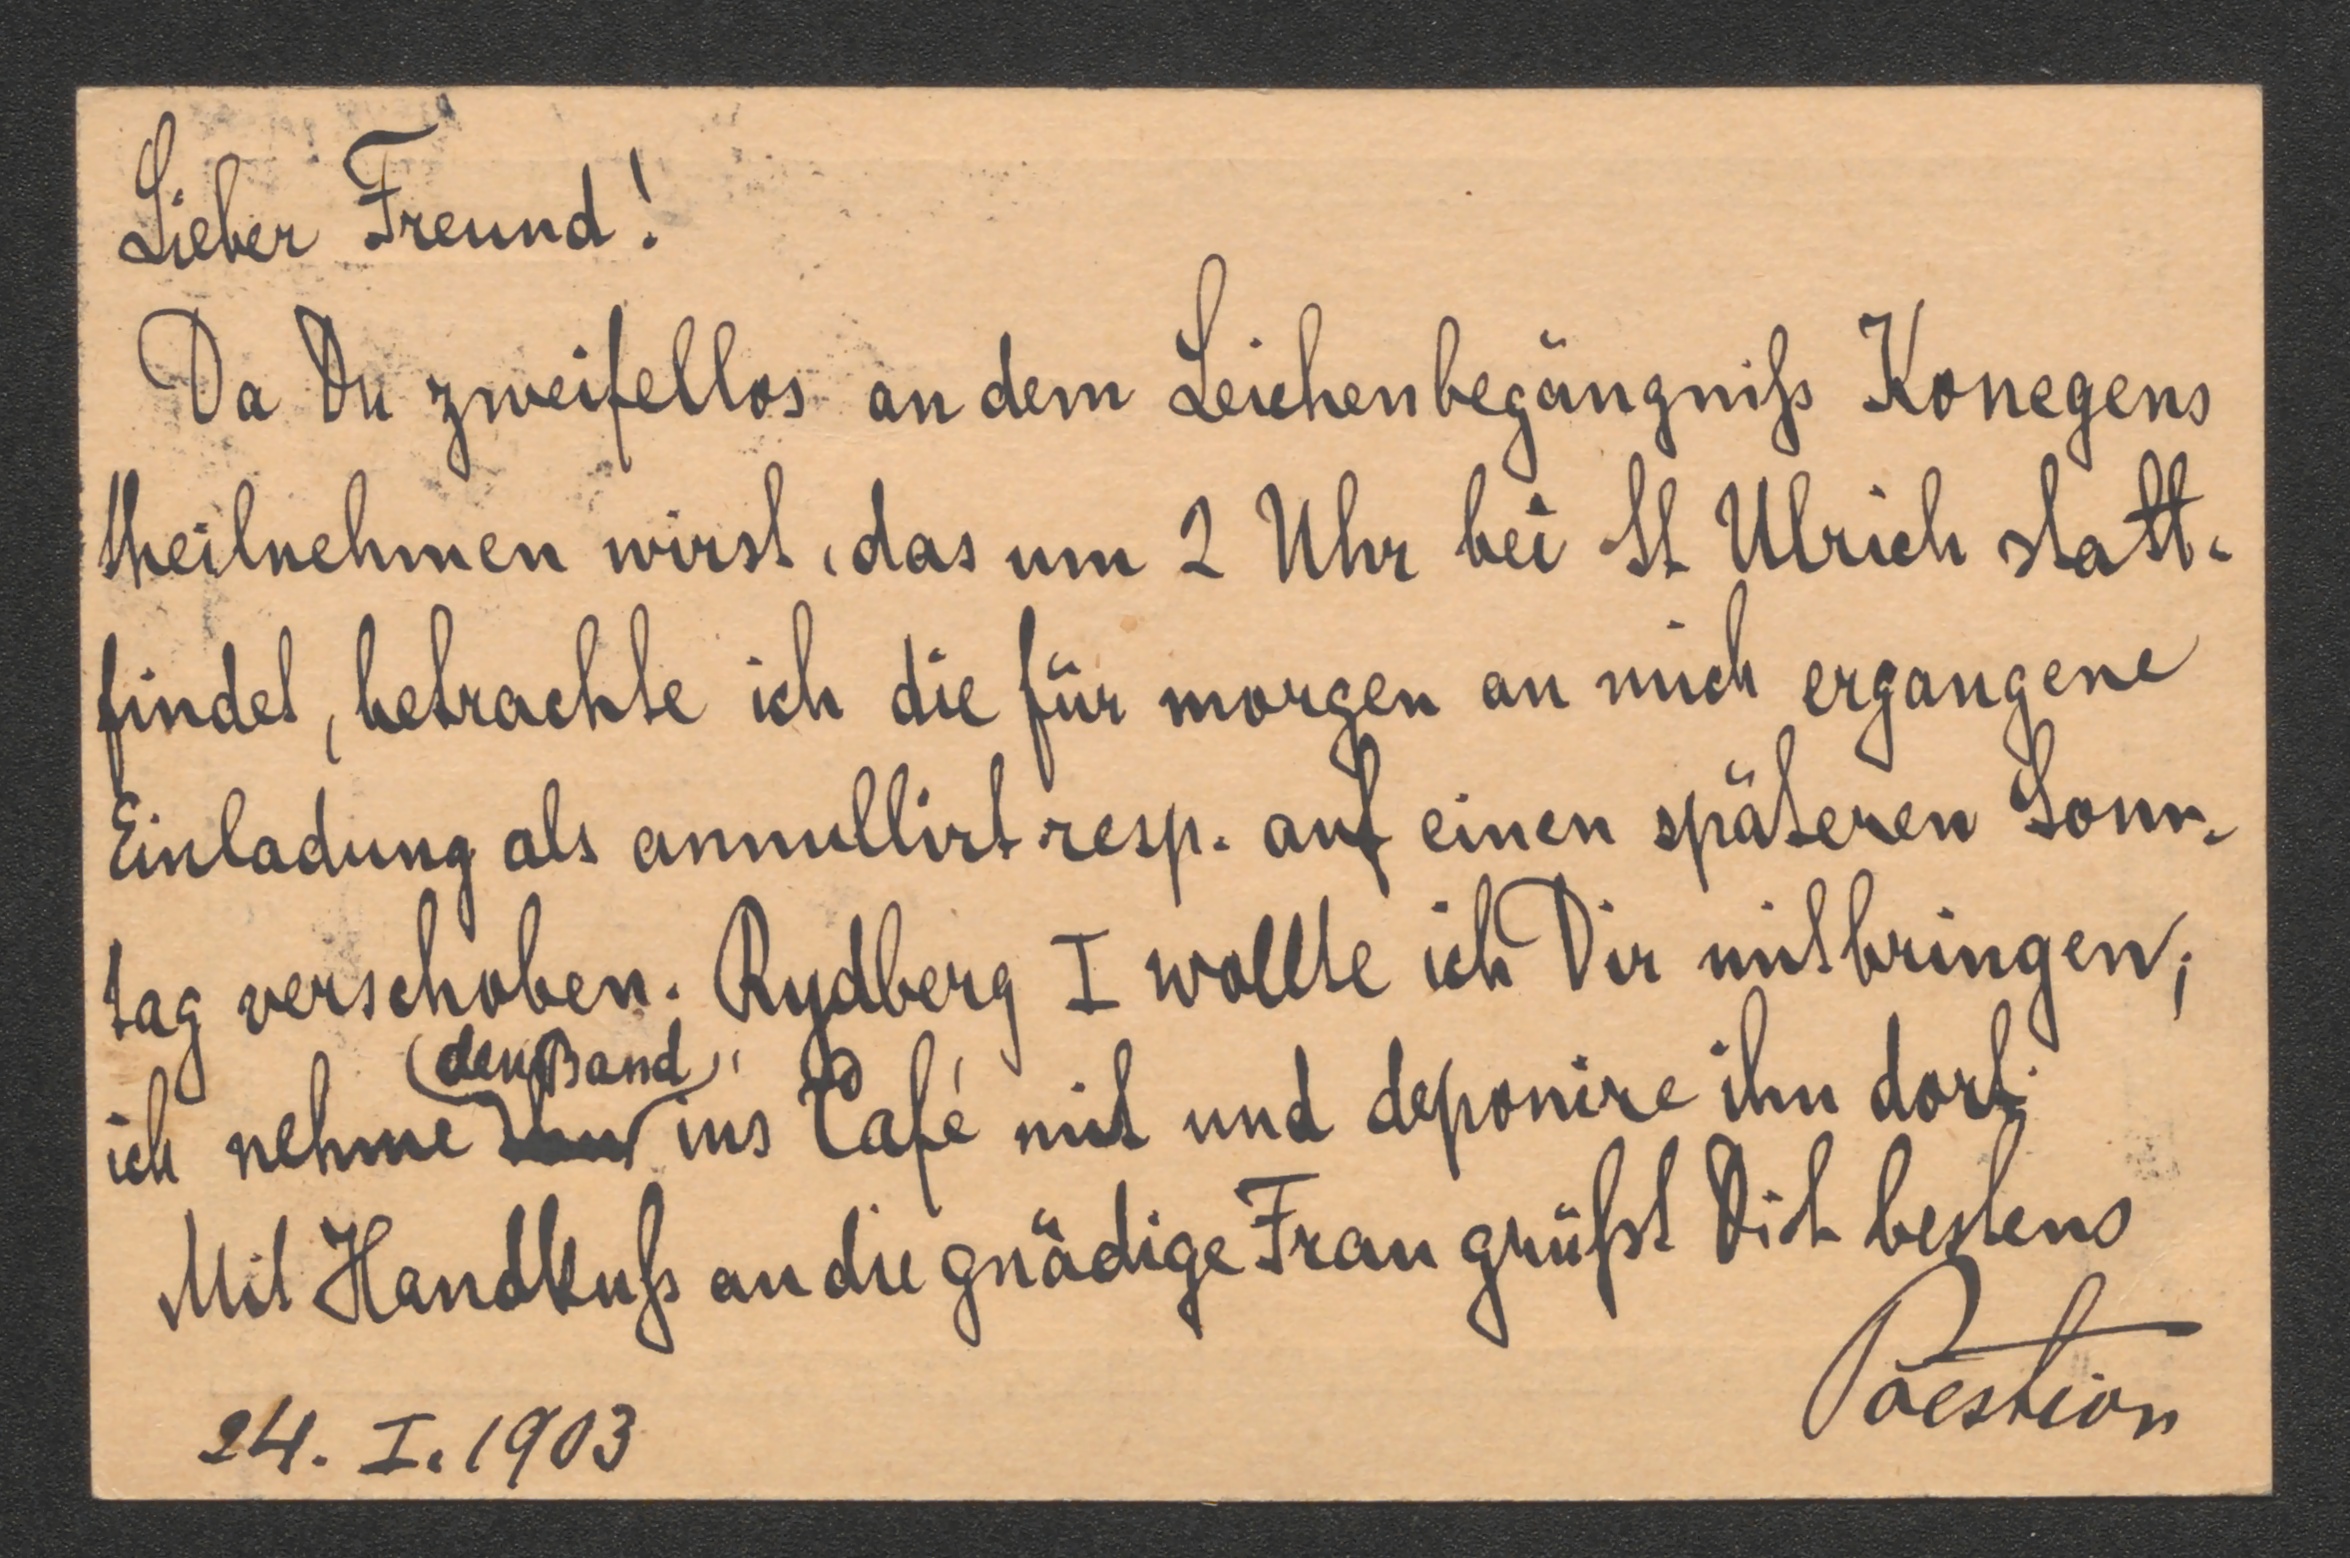 Lieber Freund!
Da Du zweifellos an dem Leichenbegängniß Konegens
theilnehmen wirst, das um 2 Uhr bei St Ulrich statt-
findet, betrachte ich die für morgen an mich ergangene
Einladung als annullirt resp. auf einen späteren Sonn-
tag verschoben. Rydberg I wollte ich Dir mitbringen;
den Band
ich nehme ins Café mit und deponire ihn dort.
Mit Handkuß an die gnädige Frau grüßt Dich bestens
Poestion
24. I. 1903